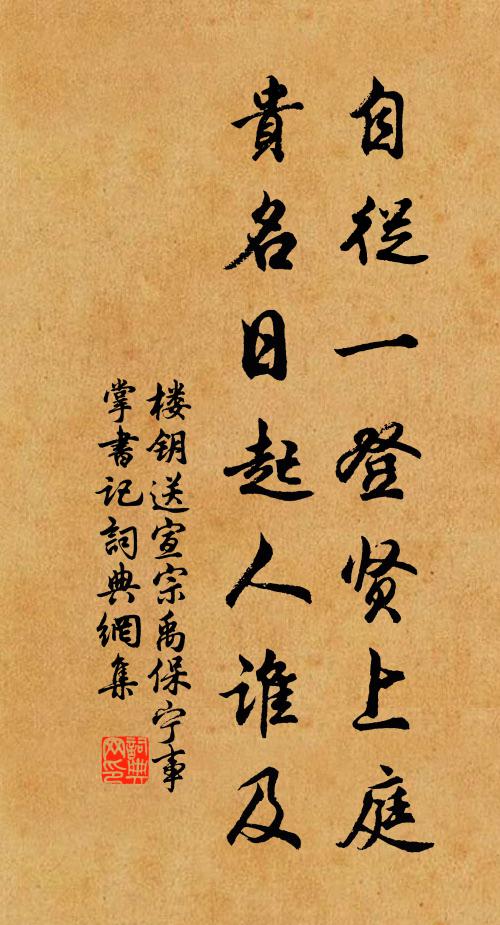 自從一登贤上庭
貴名日起人谁及
楼钥送宣宗禹保宁事
掌書记詞典網集
詞典网印